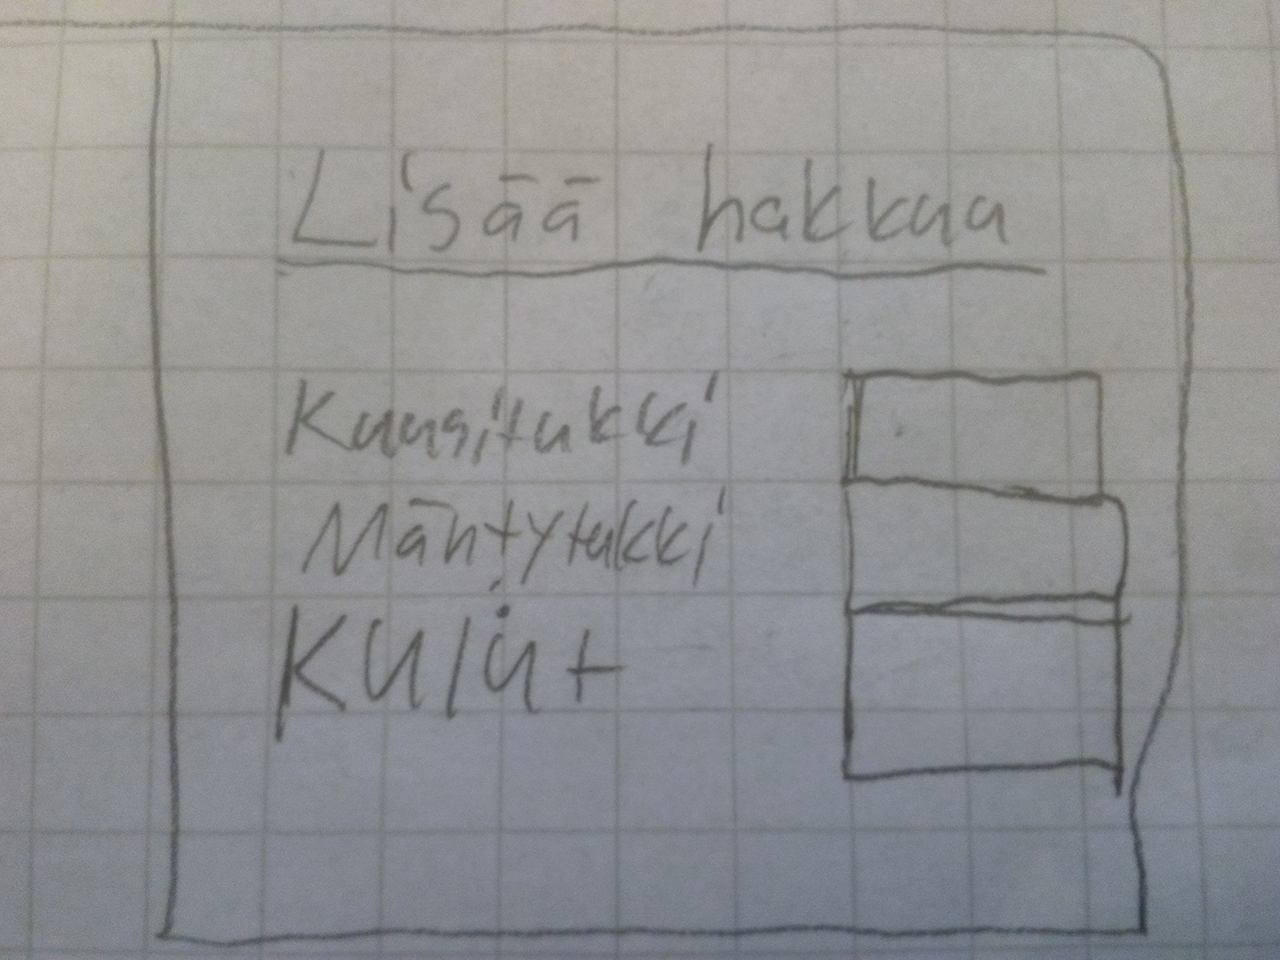 Lisää hakkuu
Kuusitukki
Mäntytukki
Kulut